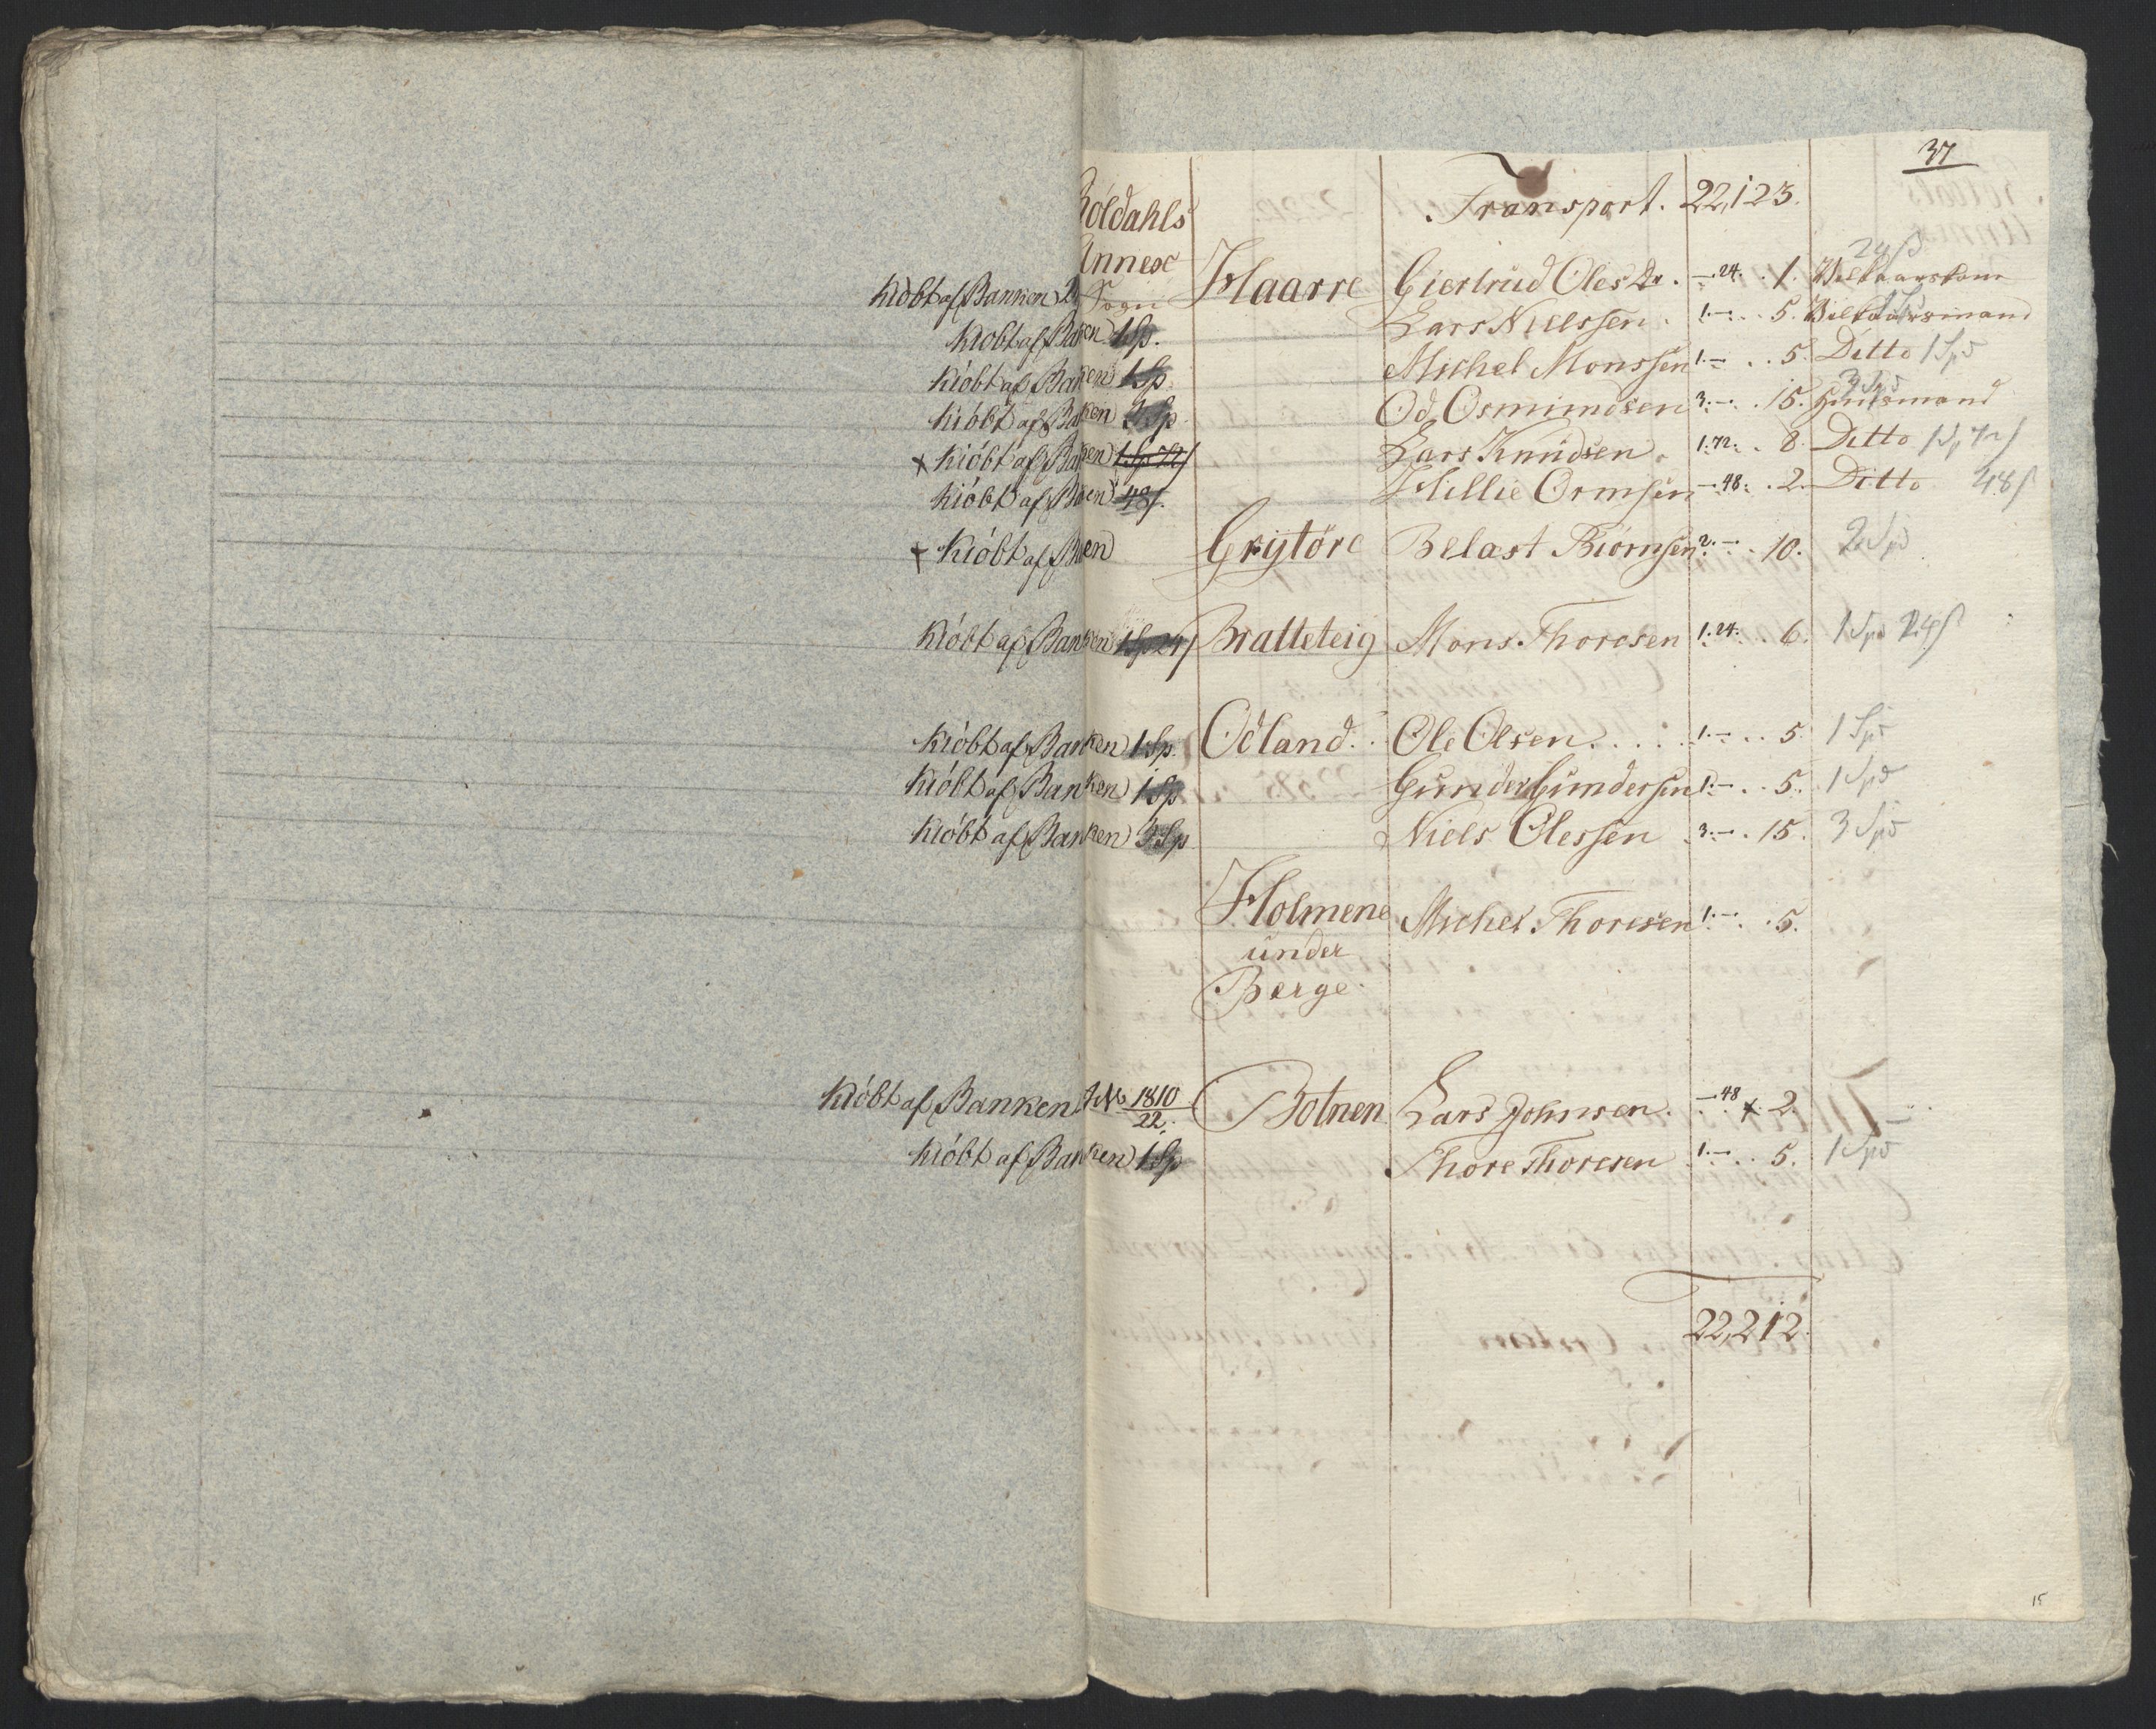 37
Röldahls Transport. 22,123.
Annex
24 s
Kiöbt af Banken Sogn Haarre Giertrud Olesdr. –.24. 1. Velkaarskone
Kiöbt af Banken 1 Sp. Lars Nielssen. 1.–. 5. Velkaarsmand
Kiöbt af Banken 1 Sp. Michel Monssen 1.–. 5. Ditto 1 Spd
3 Spd
Kiöbt af Banken 3 Sp. Od Osmundsen 3.–. 15. Huusmand
x Kiöbt af Banken 1 Sp 72 s Lars Knudsen. 1.72. 8. Ditto 1 Sp 72 s
Kiöbt af Banken 48 s. Hillie Ormsen –.48. 2. Ditto 48 s
x Kiöbt af Banken Grytöre Belast Biörnsen 2.–. 10. 2 Spd
Kiöbt af Banken 1 Sp 24 s Bratteteig Mons Thoresen 1.24. 6. 1 Spd 24 s
Kiöbt af Banken 1 Sp. Odland. Ole Olsen. 1.–. 5. 1 Spd
Kiöbt af Banken 1 Sp Gunder Gundersen 1.–. 5. 1 Spd
Kiöbt af Banken 3 Sp. Niels Olessen 3.–. 15. 3 Spd
Holmene Michel Thoresen 1.–. 5.
under
Berge.
Kiöbt af Banken No 1810 Botnen Lars Johnsen. –.48 x 2.
22.
Kiöbt af Banken 1 Sp Thore Thoresen 1.–. 5. 1 Spd
22,212.
15